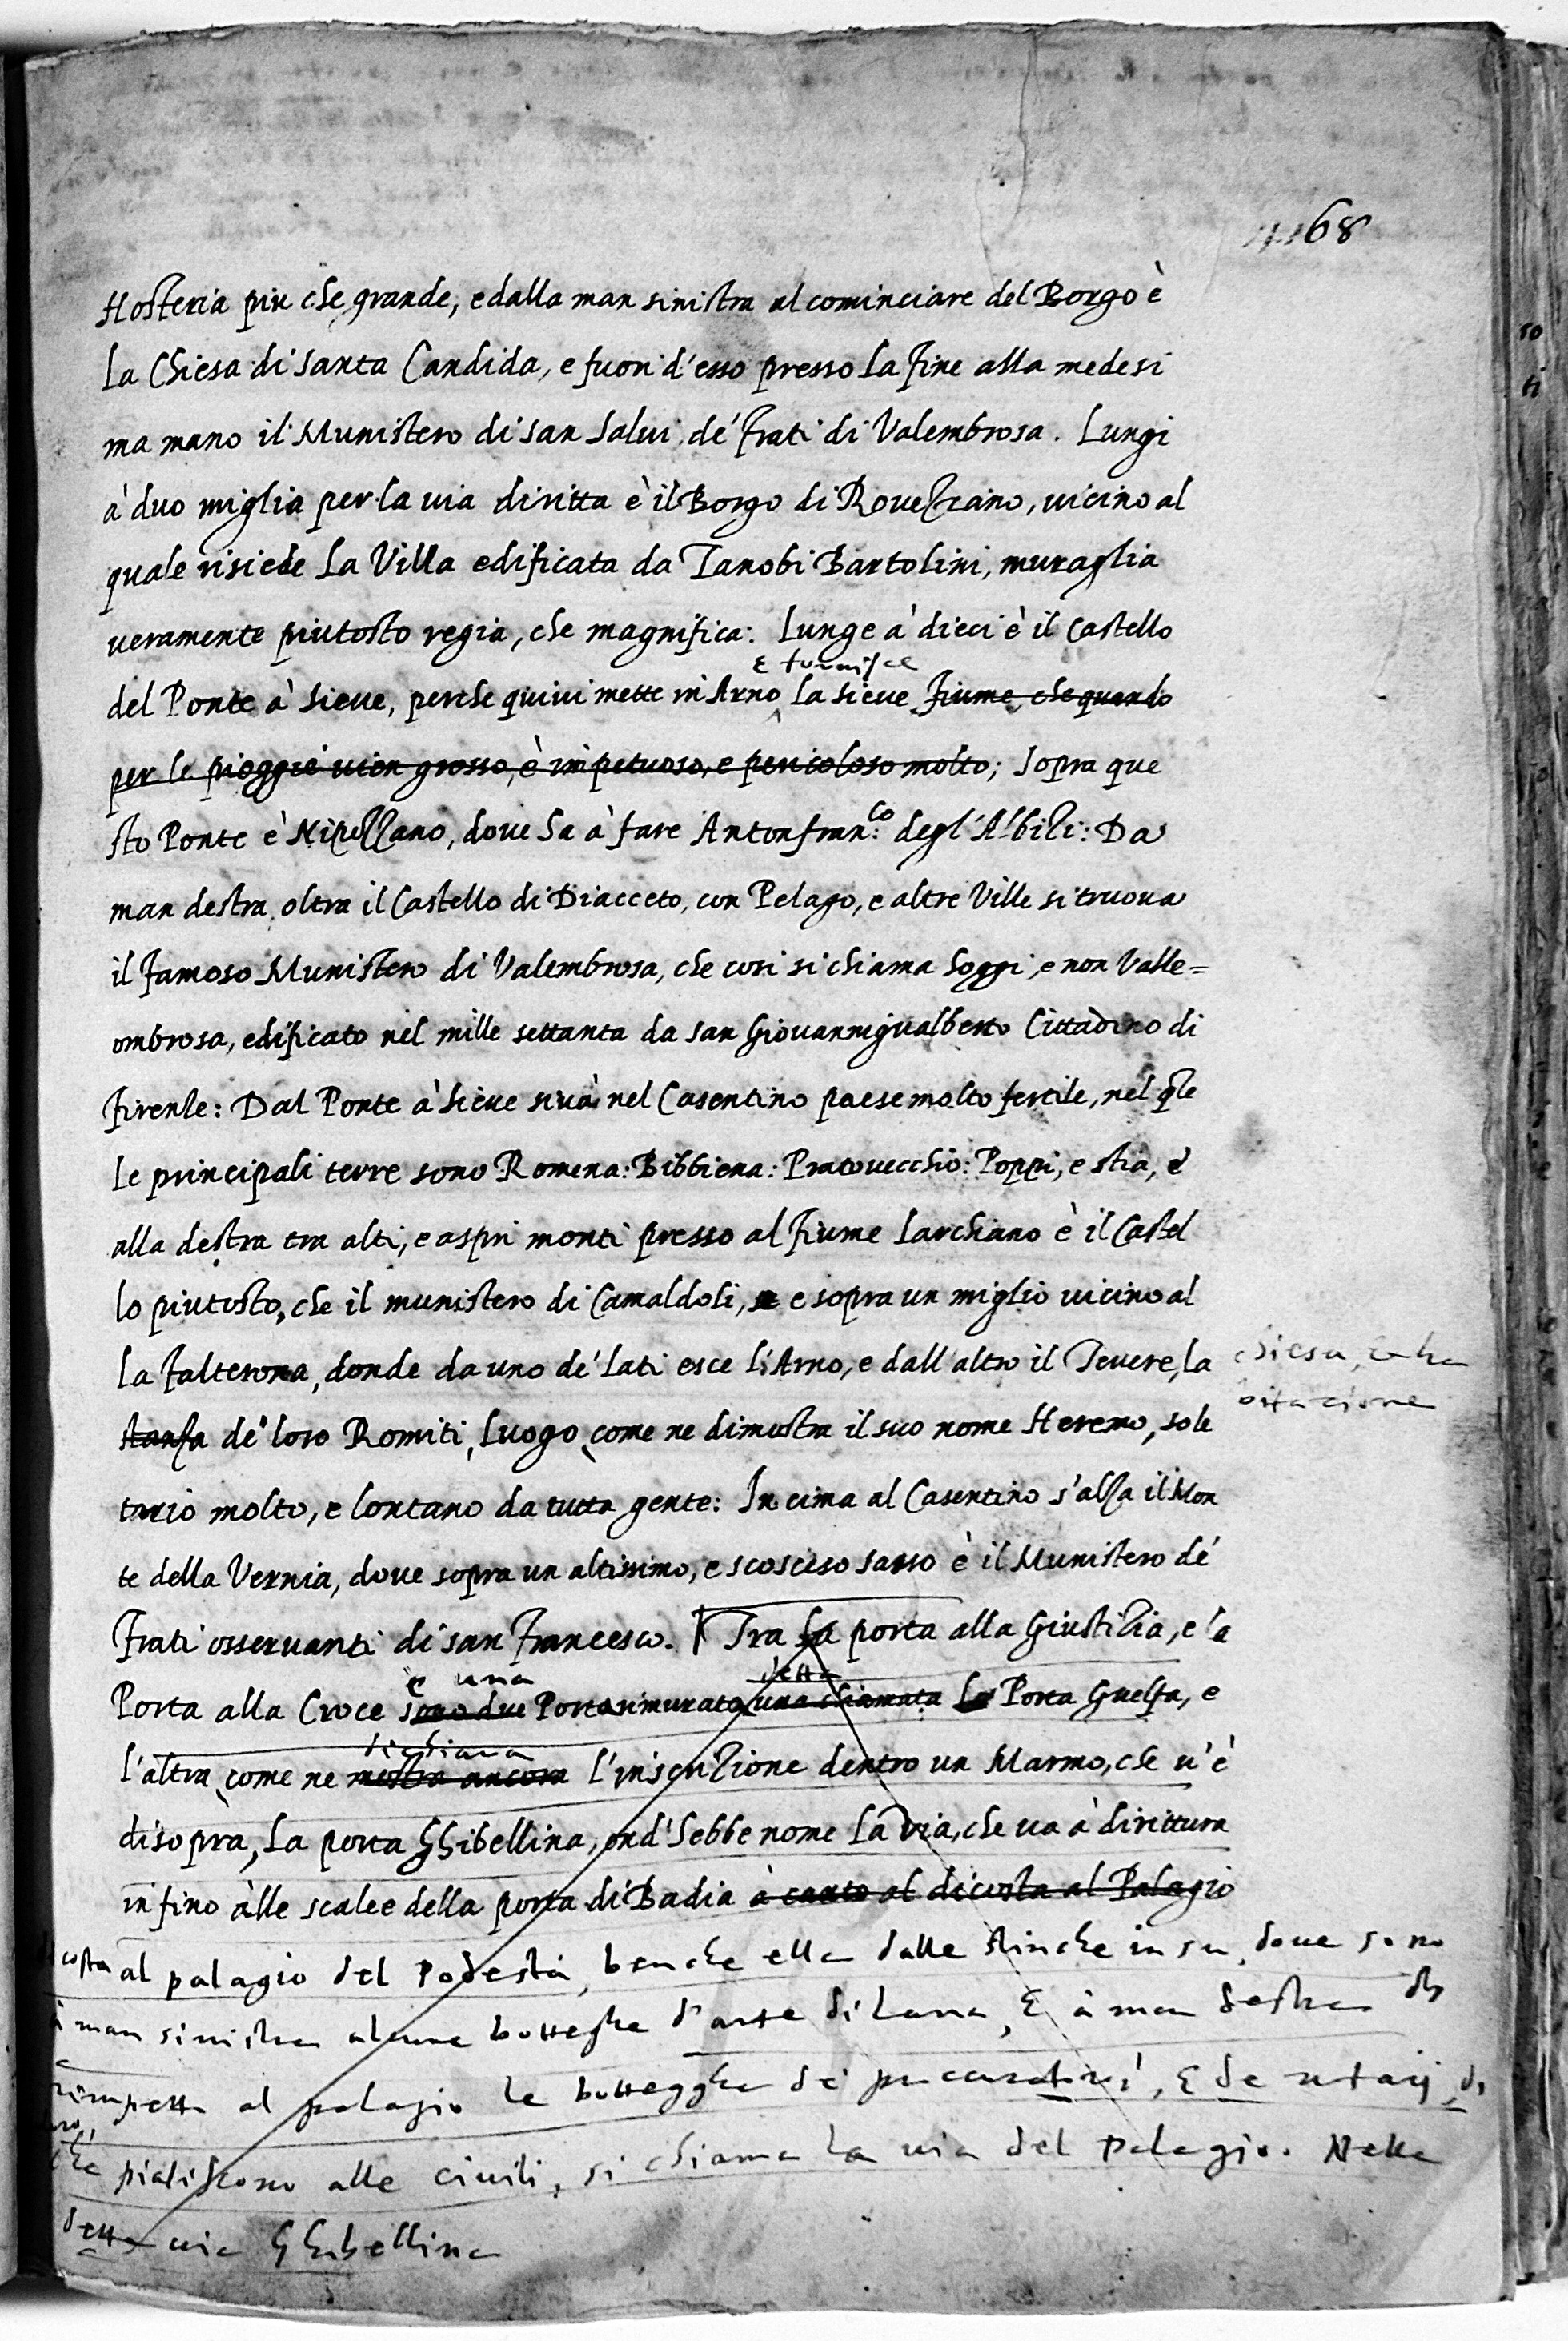 168
Hosteria piu che grande, e dalla man sinistra al cominciare del Borgo è
la Chiesa di santa Candida, e fuori d'esso presso la fine alla medesi
ma mano il Munistero di san Salui de' frati di Valembrosa. Lungi
à duo miglia per la uia diritta è il Borgo di Rouezzano, uicino al
quale risiede la Villa edificata da Zanobi Bartolini, muraglia
ueramente piutosto regia, che magnifica: Lunge à dieci è il Castello
E fornisce
del Ponte à Sieue, perche quiui mette in Arno la sieue fiume, che quando
per le pioggie uien grosso, è impetuoso, e pericoloso molto; sopra que
sto Ponte è Nipozzano, doue ha à fare Antonfran:co degl'Albizi: Da
man destra oltra il Castello di Diacceto, con Pelago, e altre Ville si truoua
il famoso Munistero di Valembrosa, che cosi si chiama hoggi, e non Valle=
ombrosa, edificato nel mille settanta da san Giouannigualberto Cittadino di
firenze: Dal Ponte à Sieue si uà nel Casentino paese molto fertile, nel qle
le principali terre sono Romena: Bibbiena: Pratouecchio: Poppi, e stia, e
alla destra tra alti, e aspri monti presso al fiume Larchiano è il Castel
lo piutosto, che il munistero di Camaldoli, e sopra un miglio uicino al
la falterona, donde da uno de' lati esce l'Arno, e dall'altro il Teuere, la
chiesa, e ha
bitatione
stanza de' loro Romiti, luogo, come ne dimostra il suo nome Heremo, sole
tario molto, e lontano da tutta gente: In cima al Casentino s'alza il Mon
te della Vernia, doue sopra un altissimo, e scosceso sasso è il Munistero de'
frati osseruanti di san francesco. Tra la porta alla Giustizia, e la
è una detta
Porta alla Croce sono due Porte rimurate, una chiamata la Porta Guelfa, e
dichiara
l'altra, come ne mostra ancora l'inscrizione dentro un Marmo, che u'è
disopra, la porta Ghibellina, ond'hebbe nome la Via, che ua à dirittura
infino alle scalee della porta di Badia à canto al dicosta al Palagio
costa al palagio del Podestà, benche ella dalle stinche in su, doue sono
à man sinistra alcune botteghe d'arte di Lana, E à man destra di
rimpetto al palagio le botteghe de' procuratori, E de notaij, di
che piatiscono alle ciuili, si chiama la uia del Palagio. Nella
detta uia Ghibellina